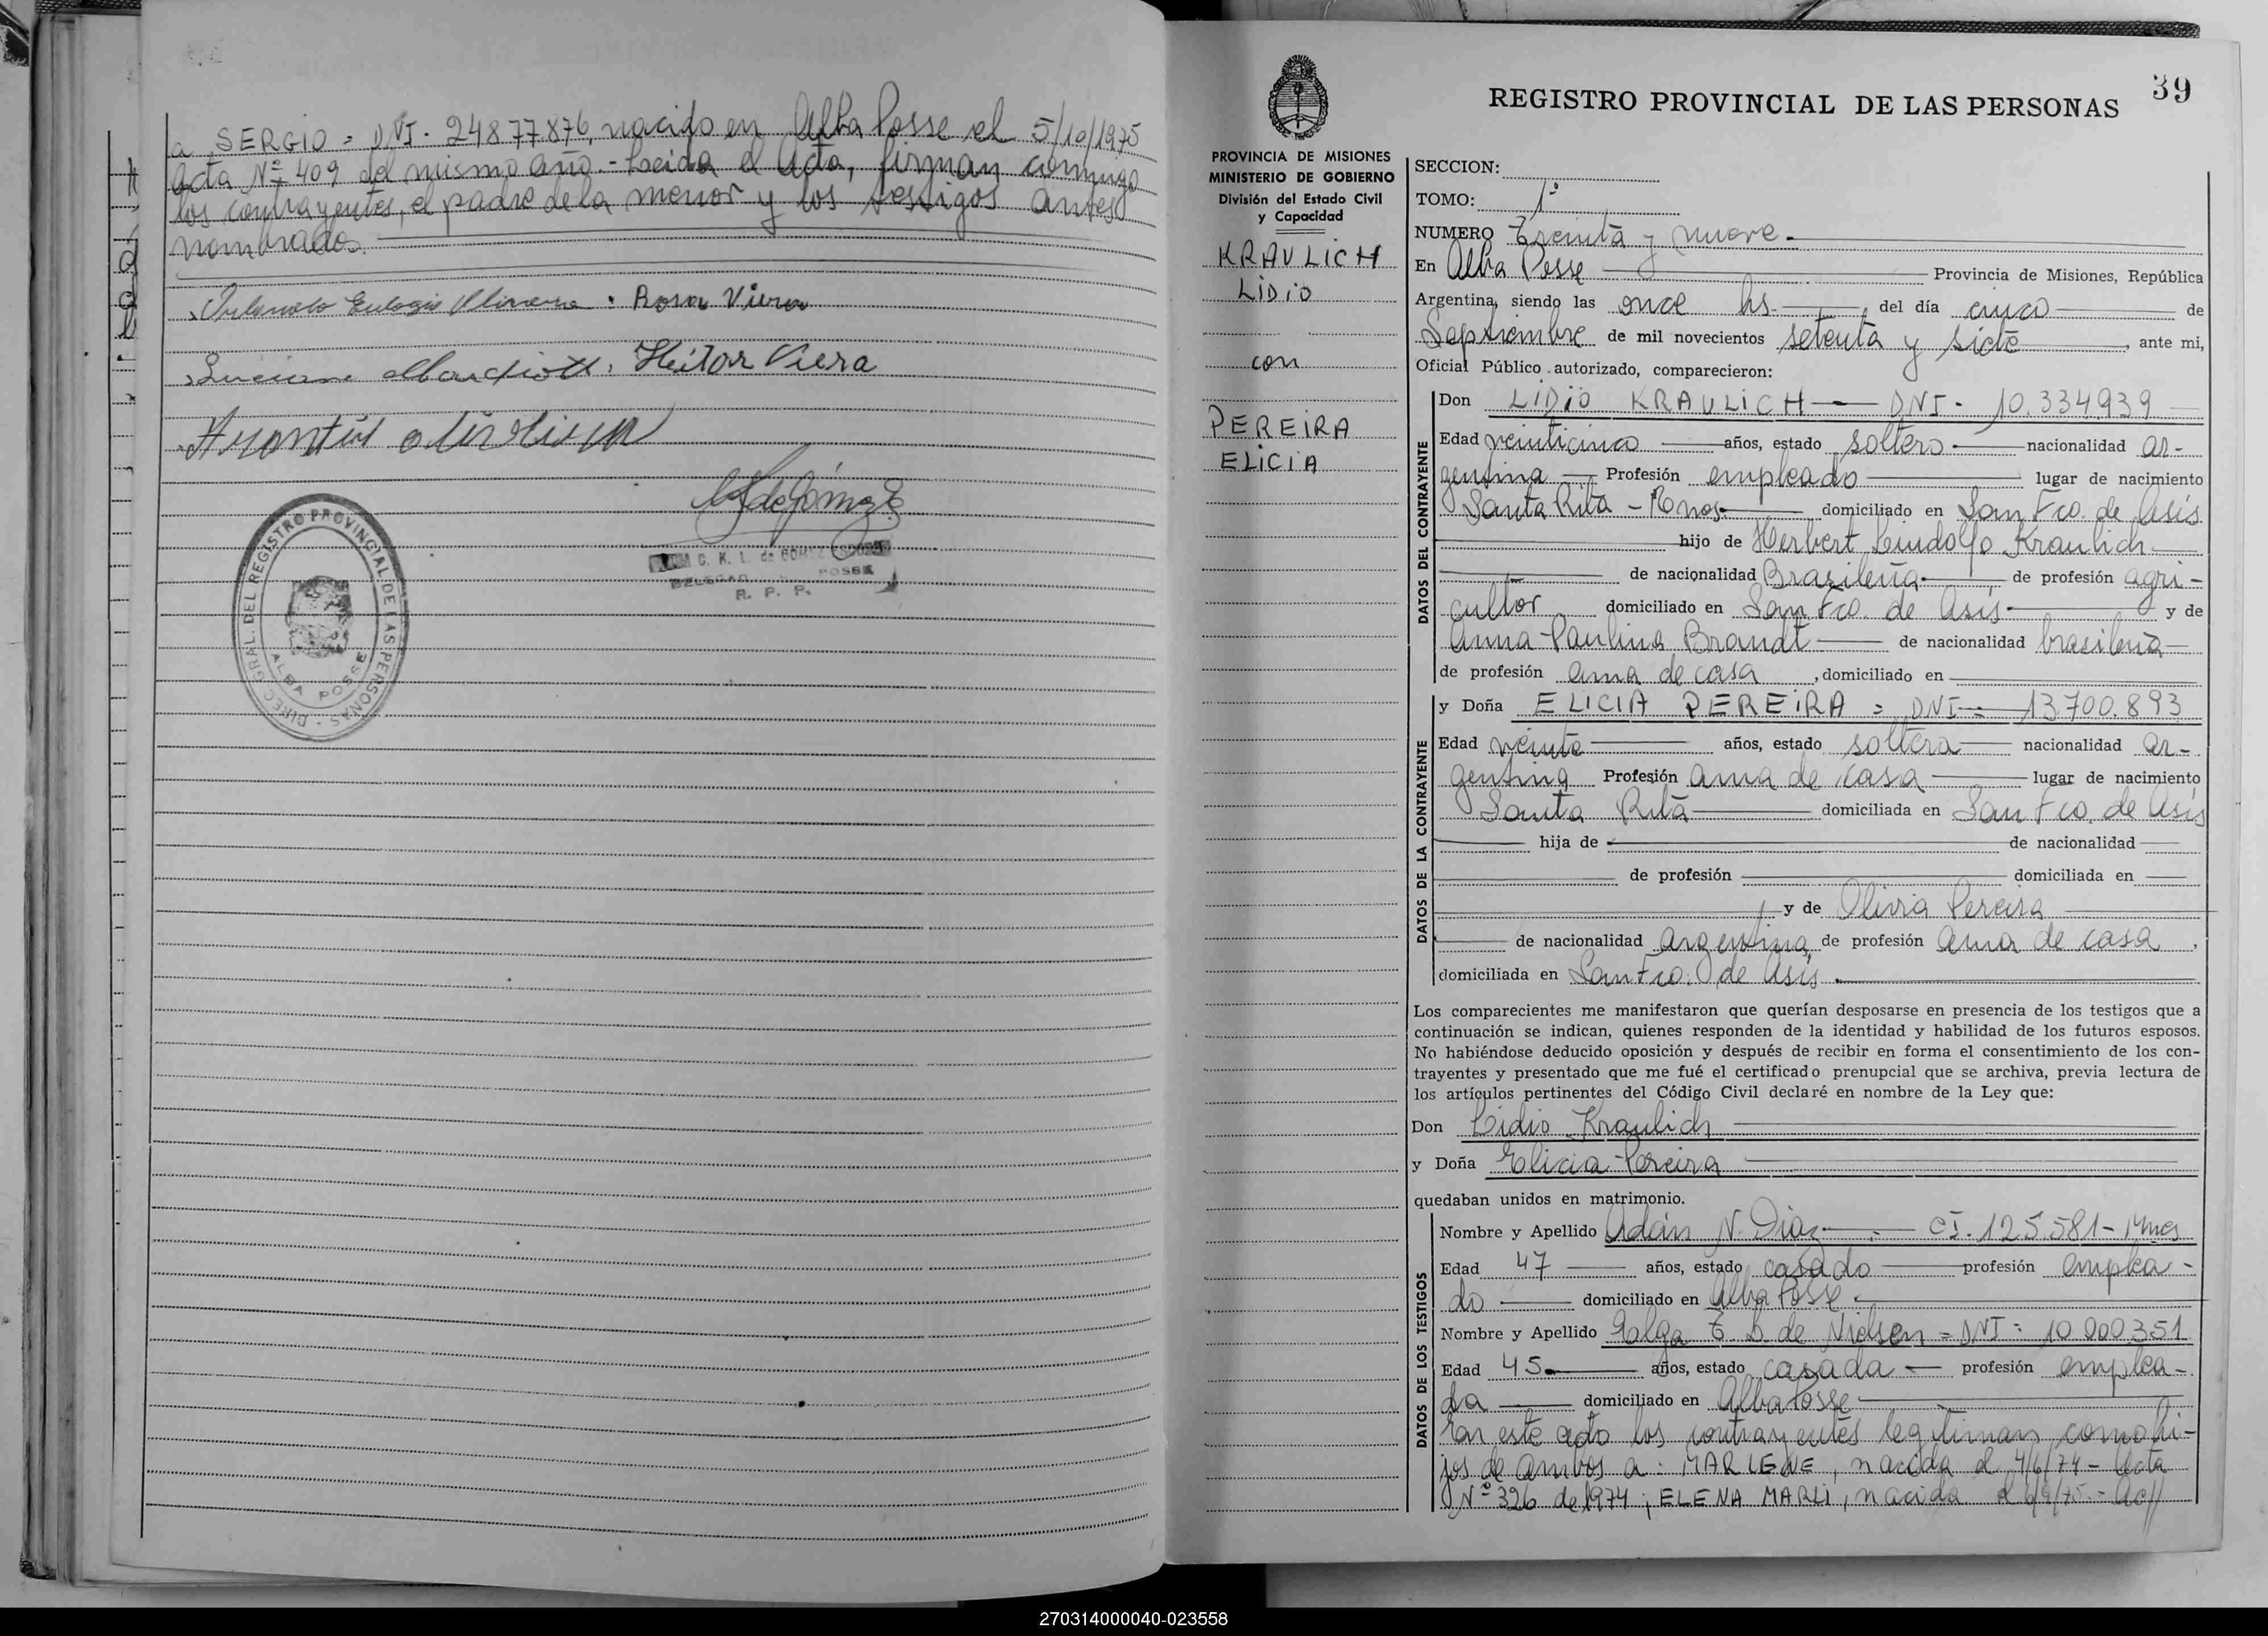 a SERGIO = DNI - 24877876, nacido en Alba Posse el 5/10/1975
Acta Nº 409 del mismo año.- Leida el Acta, firman conmigo
los contrayentes, el padre de la menor y los testigos antes
nombrados.
Eulogio
Rosa Viera
Heitor Viera
DIREC. GRAL. DEL REGISTRO PROVINCIAL DE LAS PERSONAS
ALBA POSSE
C. K. I. de
POSSE
R. P. P.
39
REGISTRO PROVINCIAL DE LAS PERSONAS
PROVINCIA DE MISIONES
MINISTERIO DE GOBIERNO
División del Estado Civil
y Capacidad
KRAULICH
LIDIO
con
PEREIRA
ELICIA
SECCION:
TOMO: 1º
NUMERO Treinta y nueve.-
En Alba Posse Provincia de Misiones, República
Argentina, siendo las once hs. del día cinco de
Septiembre de mil novecientos setenta y siete, ante mi,
Oficial Público autorizado, comparecieron:
DATOS DEL CONTRAYENTE
Don LIDIO KRAULICH — DNI - 10.334.939
Edad veinticinco años, estado soltero nacionalidad ar-
gentina Profesión empleado lugar de nacimiento
Santa Rita - domiciliado en San Fco. de Asís
hijo de Herbert Lindolfo Kraulich
de nacionalidad Brasileña de profesión agri-
cultor domiciliado en San Fco. de Asís y de
Anna Paulina Brandt de nacionalidad brasileña
de profesión ama de casa, domiciliado en
DATOS DE LA CONTRAYENTE
y Doña ELICIA PEREIRA = DNI = 13.700.893
Edad veinte años, estado soltera nacionalidad ar-
gentina Profesión ama de casa lugar de nacimiento
Santa Rita domiciliada en San Fco. de Asís
hija de de nacionalidad
de profesión domiciliada en
y de Olivia Pereira
de nacionalidad argentina, de profesión ama de casa,
domiciliada en San Fco. de Asís.
Los comparecientes me manifestaron que querían desposarse en presencia de los testigos que a
continuación se indican, quienes responden de la identidad y habilidad de los futuros esposos.
No habiéndose deducido oposición y después de recibir en forma el consentimiento de los con-
trayentes y presentado que me fué el certificado prenupcial que se archiva, previa lectura de
los artículos pertinentes del Código Civil declaré en nombre de la Ley que:
Don Lidio Kraulich
y Doña Elicia Pereira
quedaban unidos en matrimonio.
DATOS DE LOS TESTIGOS
Nombre y Apellido Adán N. Diaz - CI. 125.581 - Mnes
Edad 47 años, estado casado profesión emplea-
do domiciliado en Alba Posse.
Nombre y Apellido de Nielsen = DNI = 10.000.351
Edad 45 años, estado casada profesión emplea-
da domiciliado en Alba Posse
En este acto los contrayentes legitiman como hi-
jos de ambos a: MARLENE, nacida el 4/6/74 - Acta
Nº 326 de 1974; ELENA MARLI, nacida el
270314000040-023558